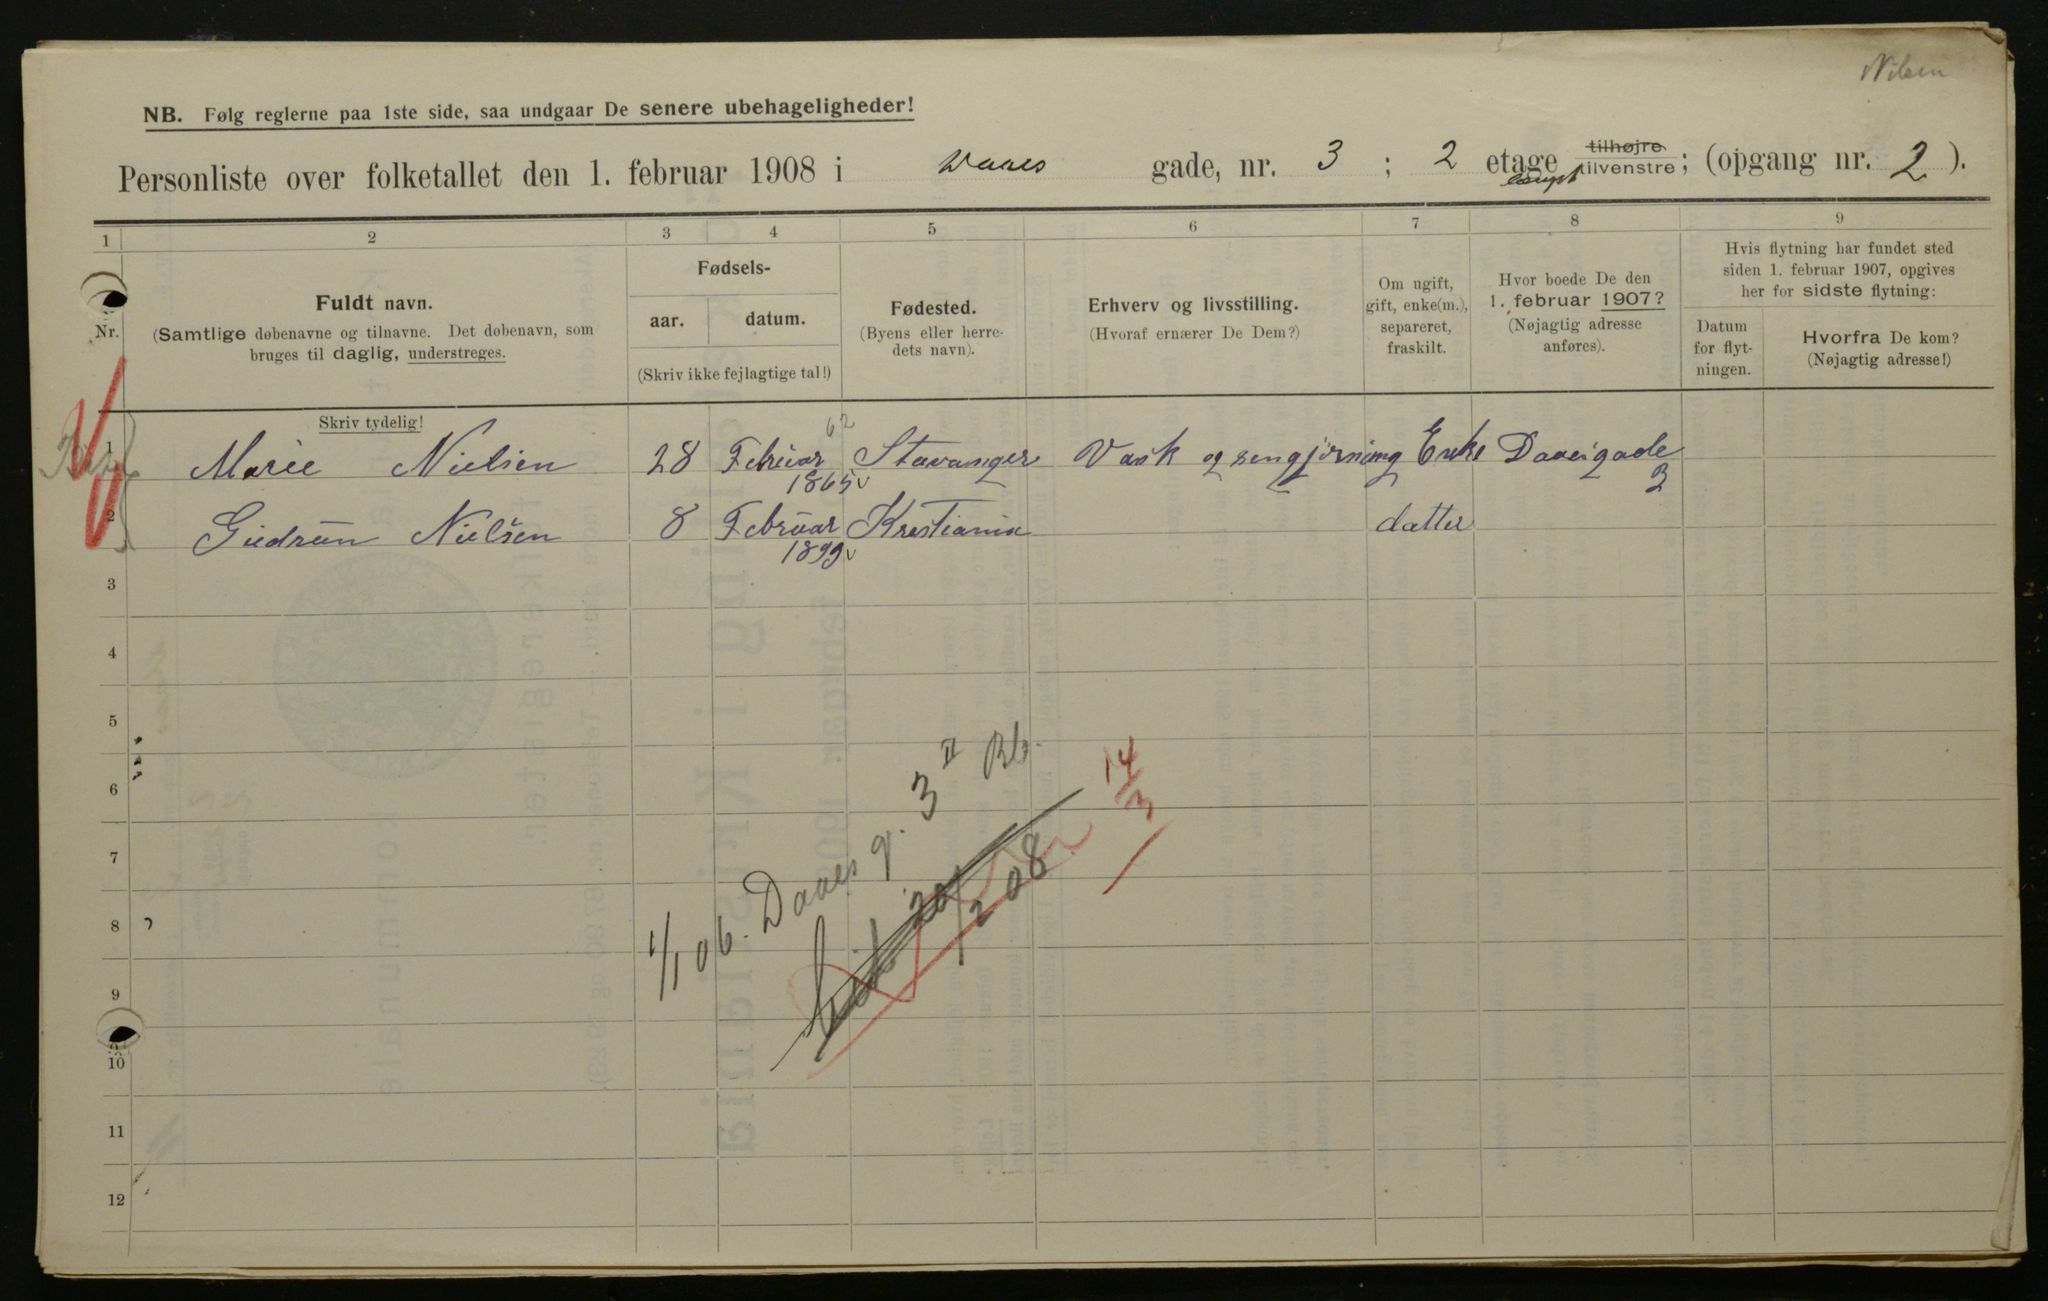 Nilsen
NB. Følg reglerne paa 1ste side, saa undgaar De senere ubehageligheder!
Personliste over folketallet den 1. februar 1908 i Daaes gade, nr. 3 ; 2 etage tilhøjre tilvenstre; (opgang nr. 2).
1 2 3 4 5 6 7 8 9
Nr.
Fuldt navn.
(Samtlige døbenavne og tilnavne. Det døbenavn, som
bruges til daglig, understreges.
Fødsels-
aar. datum.
(Skriv ikke fejlagtige tal!)
Fødested.
(Byens eller herre-
dets navn).
Erhverv og livsstilling.
(Hvoraf ernærer De Dem?)
Om ugift,
gift, enke(m.),
separeret,
fraskilt.
Hvor boede De den
1. februar 1907?
(Nøjagtig adresse
anføres).
Hvis flytning har fundet sted
siden 1. februar 1907, opgives
her for sidste flytning:
Datum
for flyt-
ningen.
Hvorfra De kom?
(Nøjagtig adresse!)
Skriv tydelig!
62
1 Marie Nielsen 28 Februar 1865 Stavanger Vask og rengjørning Enke Daaesgade 3
2 Giedrun Nielsen 8 Februar 1899 Kristiania datter
3
4
5
6
7
8
9
10
11
12
1/1 06. Daaes g. 3 II Bb.
20/2 08
14/3